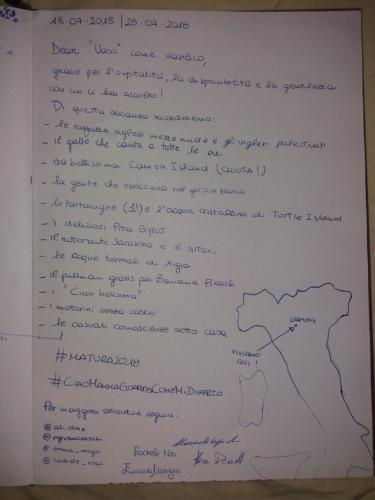 18.07.2018 | 25.07.2018
Dear "Vaso" come vasilico,
grazie per l'ospitalità, la disponibilità e la gentilezza
con cui ci hai accolto!
Di questa vacanza ricorderemo:
- le ragazze inglesi mezze nude e gli inglesi palestrati
- il gallo che canta a tutte le ore
- era bellissima Cameo Island (CHIUSA!)
- la gente che sboccava nel giro in barca
- le tartarughe (1!) e l'acqua cristallina di Turtle Island
- i deliziosi Pita Gyros
- il ristorante Sarakina e il sirtaki
- le acque termali di Xigia
- il pullman gratis per Banana Beach
- i "Ciao bellissima"
- i motorini senza casco
- le casuali conoscenze sotto casa
!
#MATURA2018
#CIAOMAMMAGUARDACOMEMIDIVERTO
VIVIAMO
QUI!
Per maggiori avventure seguire: